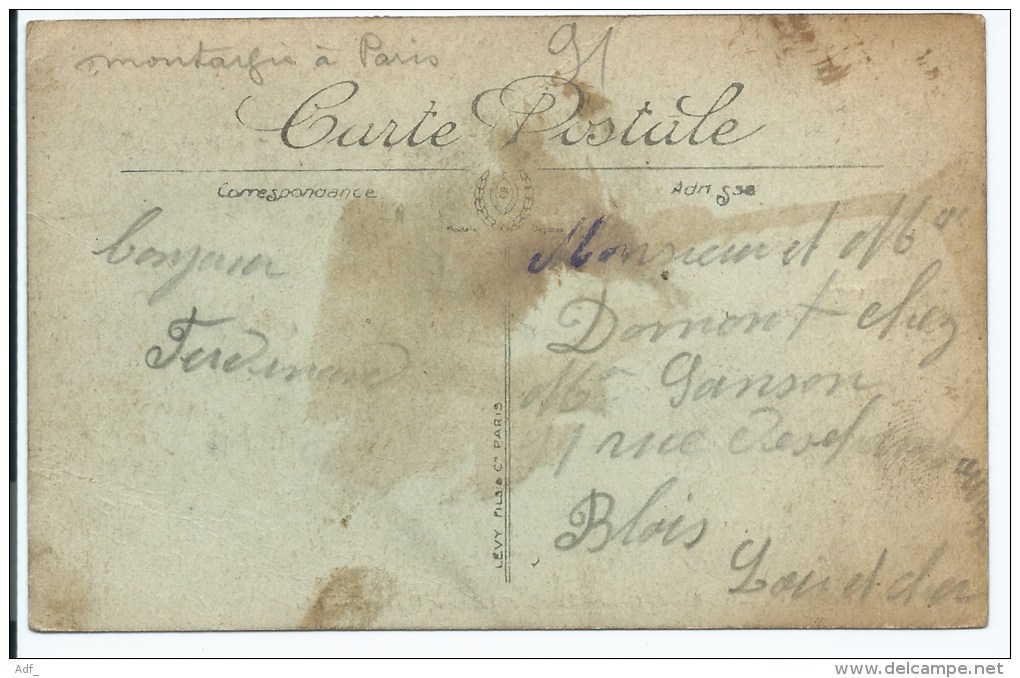 montargie à Paris
91
Carte Postale
Correspondance
Adresse
bonjour
Ferdinand
Monsieur et Mme
Domont chez
Mr Sanson
1 rue
Blois
Loir et cher
LÉVY FILS & Cie PARIS
Adf_
www.delcampe.net